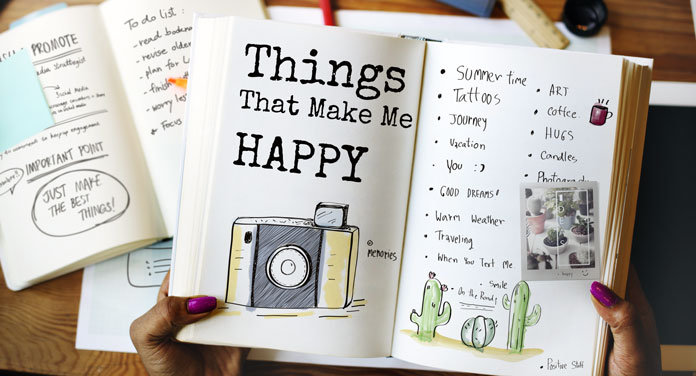 PROMOTE
Social
Media
IMPORTANT POINT
JUST MAKE
THE BEST
THINGS!
To do list :
-read
-revise older
-plan for
Things
That Make Me
HAPPY
© memories
• Summer time
• Tattoos
• Journey
• Vacation
• You :)
• GOOD DREAMS!
• Warm Weather
• Traveling
• When You Text Me
• Smile
• On the Road
• ART
• coffee
• HUGS
• Candles
• Positive Stuff